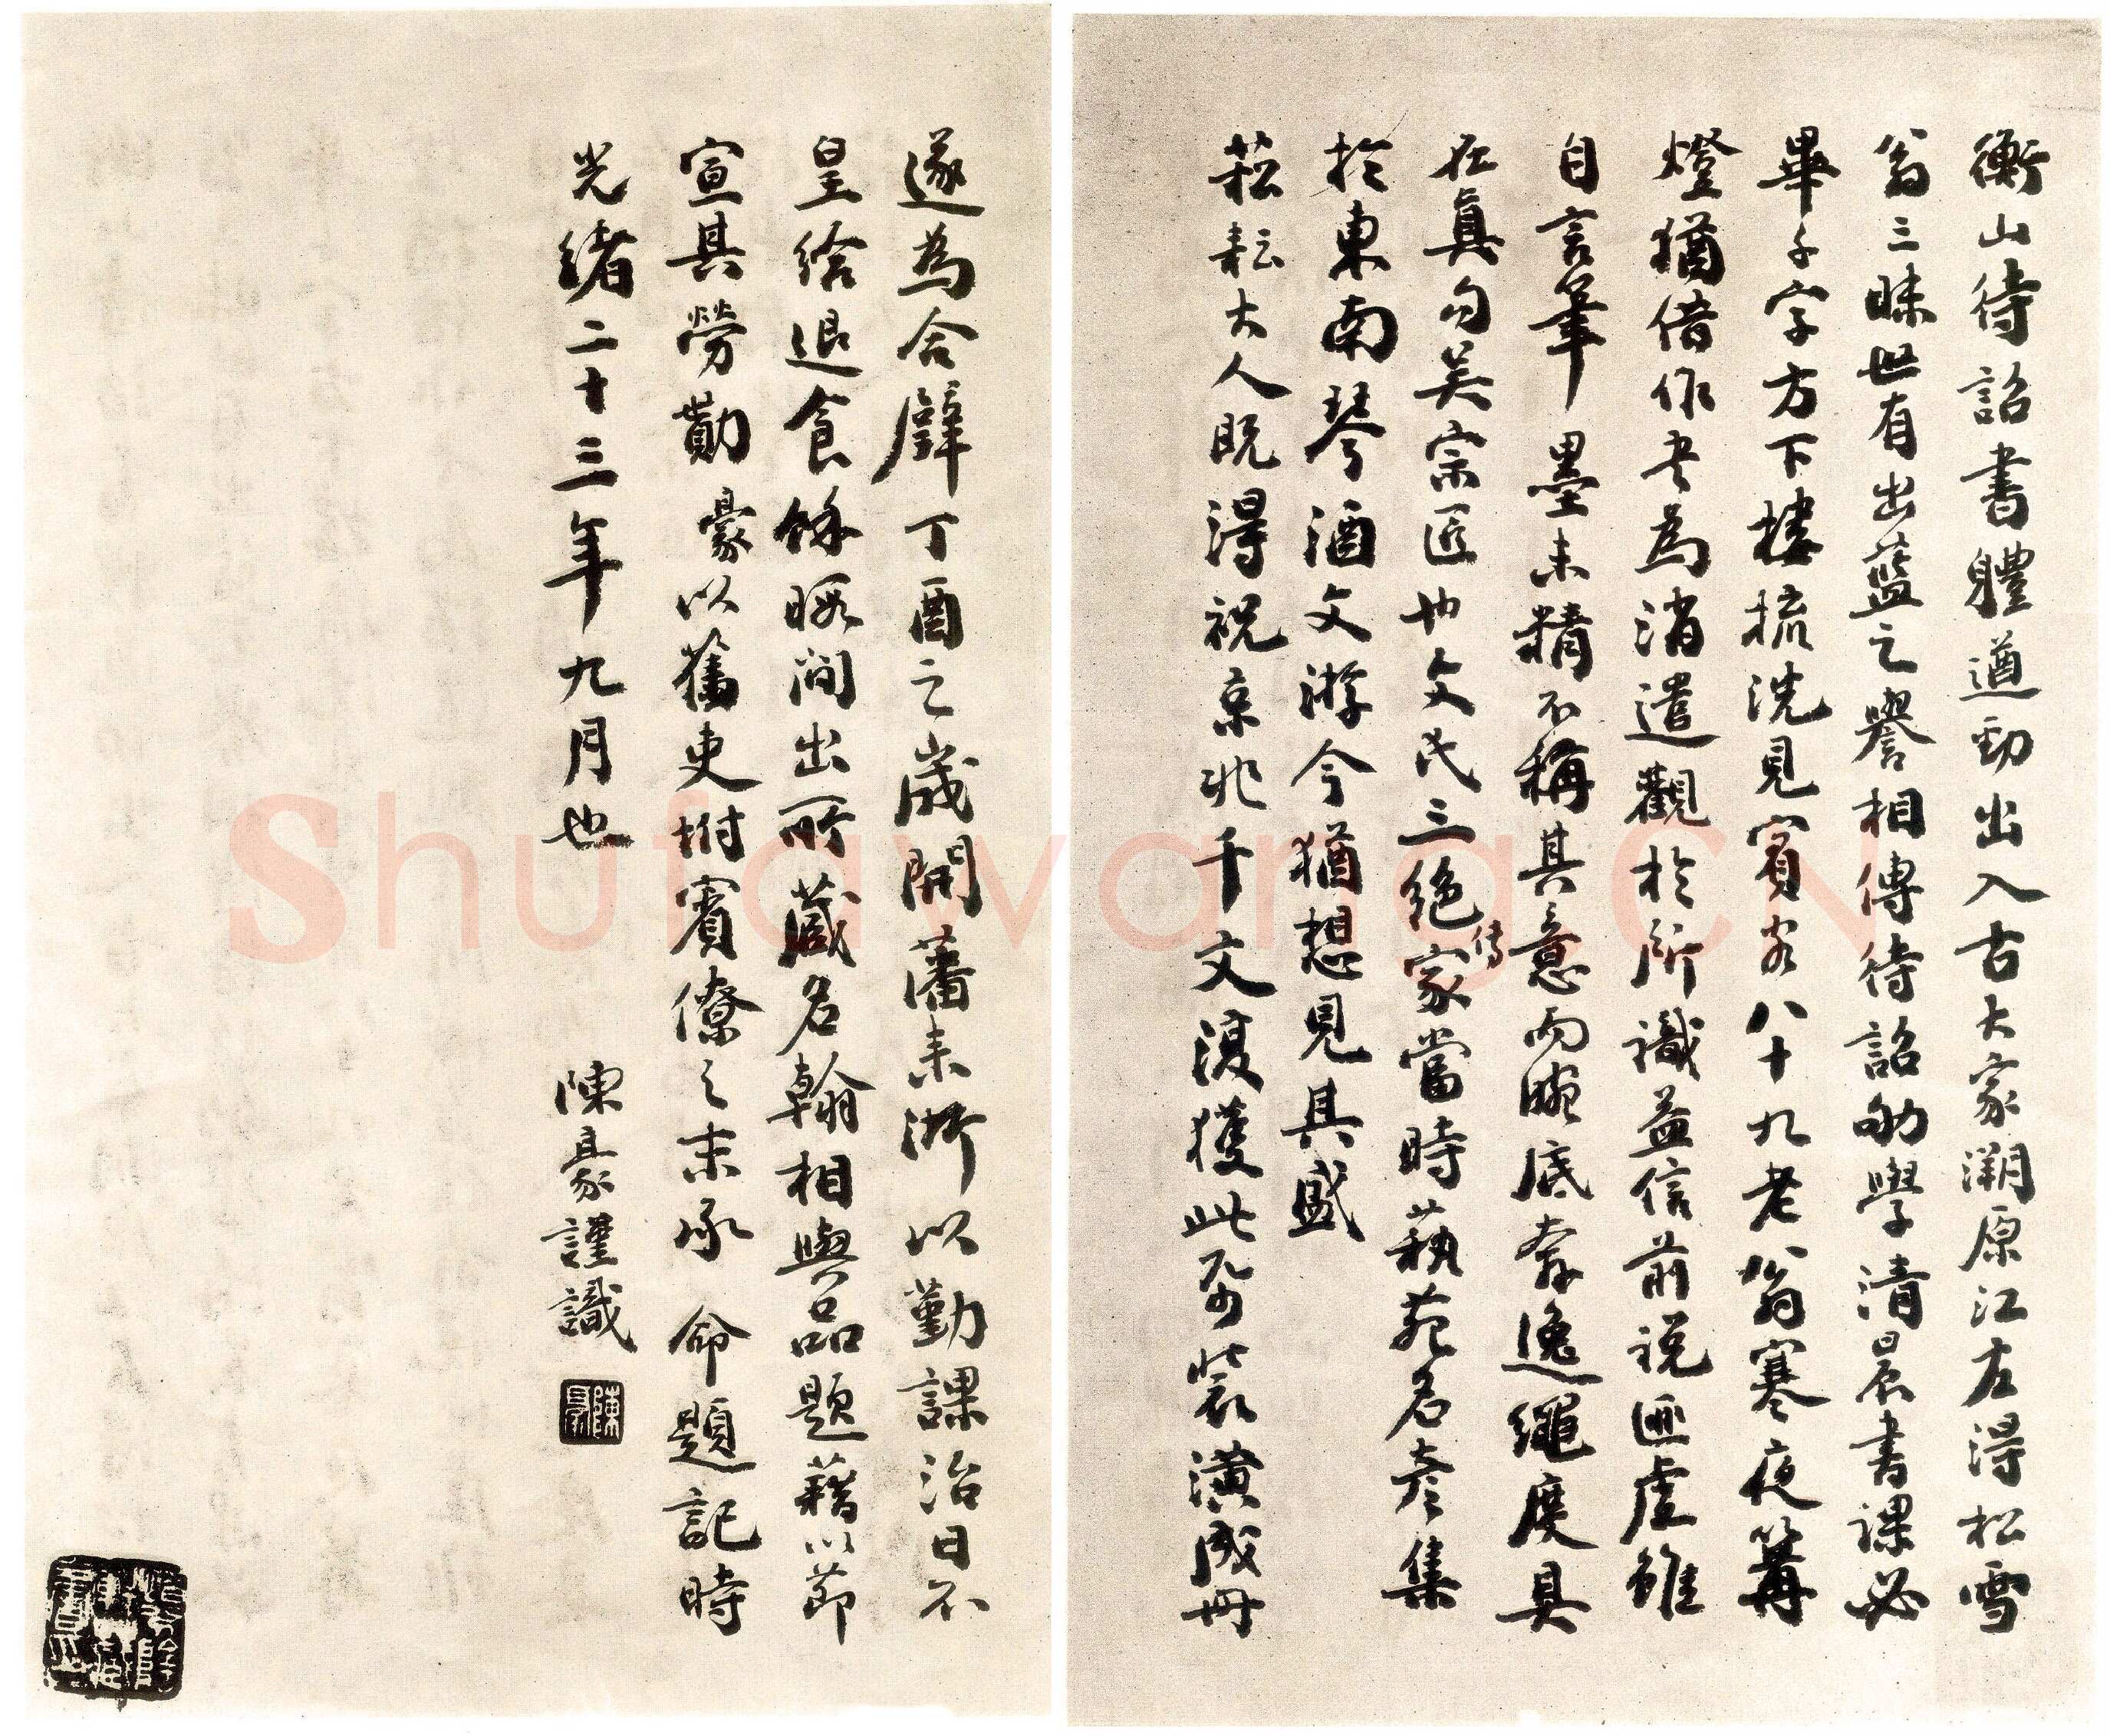 衡山待詔書體遒勁出入古大家溯原江左得松雪
翁三昧世有出藍之譽相傳待詔劬學清晨書課必
畢千字方下樓梳洗見賓客八十九老翁寒夜篝
燈猶借作書為消遣觀於所識益信前說匪虛雖
自言筆墨未精不稱其意而腕底奔逸繩度具
在真勾吳宗匠也文氏三絕傳家當時蓺苑名彥集
於東南琴酒文游今猶想見其盛
菘耘大人既得祝京兆千文復獲此冊裝潢成冊
遂為合璧丁酉之歲開藩來浙以勤課治日不
皇給退食餘暇間出所藏名翰相與品題藉以節
宣其勞勩豪以舊吏坿賓僚之末承命題記時
光緒二十三年九月也 陳豪謹識
陳豪
Shufawang.CN